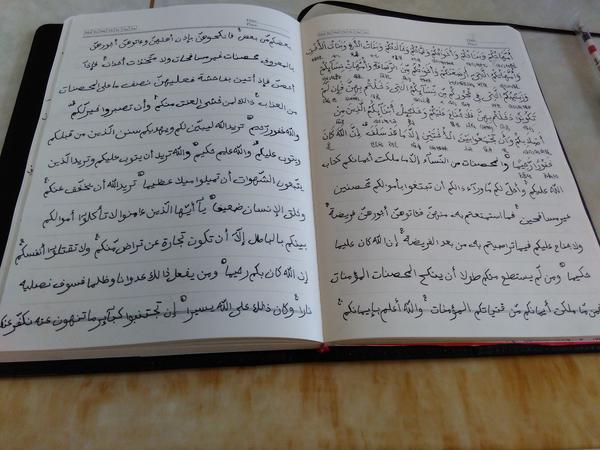 أمهاتكم وبناتكم وأخواتكم وعماتكم وخالاتكم وبنات الأخ وبنات الأخت
وأمهاتكم التي أرضعنكم وأخواتكم من الرضاعة وأمهات نسائكم
وربائبكم التي في حجوركم من نسائكم التي دخلتم بهن فإن لم
تكونوا دخلتم بهن فلا جناح عليكم وحلائل أبنائكم الذين من
أصلابكم وأن تجمعوا بين الأختين إلا ما قد سلف إن الله كان
غفورا رحيما والمحصنات من النساء إلا ما ملكت أيمانكم كتاب
الله عليكم وأحل لكم ما وراء ذالكم أن تبتغوا بأموالكم محصنين
غير مسافحين فما استمتعتم به منهن فئاتوهن أجورهن فريضة
ولا جناح عليكم فيما تراضيتم به من بعد الفريضة إن الله كان عليما
حكيما ومن لم يستطع منكم طولا أن ينكح المحصنات المؤمنات
فمن ما ملكت أيمانكم من فتياتكم المؤمنات والله أعلم بإيمانكم
بعضكم من بعض فانكحوهن بإذن أهلهن وءاتوهن أجورهن
بالمعروف محصنات غير مسافحات ولا متخذات أخدان فإذا
أحصن فإن أتين بفاحشة فعليهن نصف ما على المحصنات
من العذاب ذالك لمن خشي العنت منكم وأن تصبروا خير لكم
والله غفور رحيم يريد الله ليبين لكم ويهديكم سنن الذين من قبلكم
ويتوب عليكم والله عليم حكيم والله يريد أن يتوب عليكم ويريد الذين
يتبعون الشهوات أن تميلوا ميلا عظيما يريد الله أن يخفف عنكم
وخلق الإنسان ضعيفا يا أيها الذين ءامنوا لا تأكلوا أموالكم
بينكم بالباطل إلا أن تكون تجارة عن تراض منكم ولا تقتلوا أنفسكم
إن الله كان بكم رحيما ومن يفعل ذالك عدوانا وظلما فسوف نصليه
نارا وكان ذالك على الله يسيرا إن تجتنبوا كبائر ما تنهون عنه نكفر عنكم